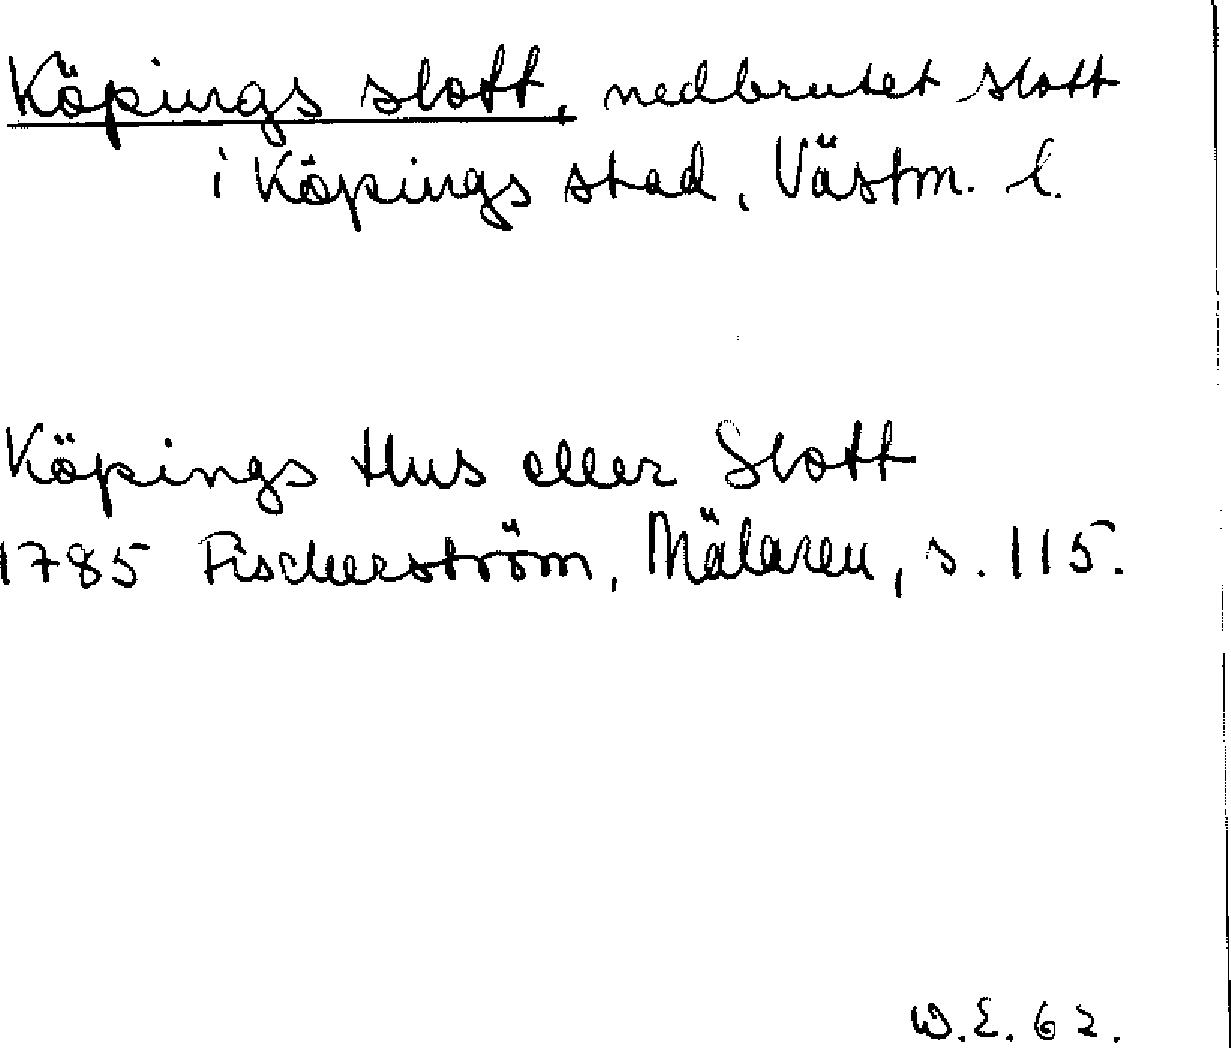 Köpings slott, nedbrutet slott
i Köpings stad, Västm. l.
Köpings Hus eller Slott
1785 Fischerström, Mälaren, s. 115.
W.E. 62.